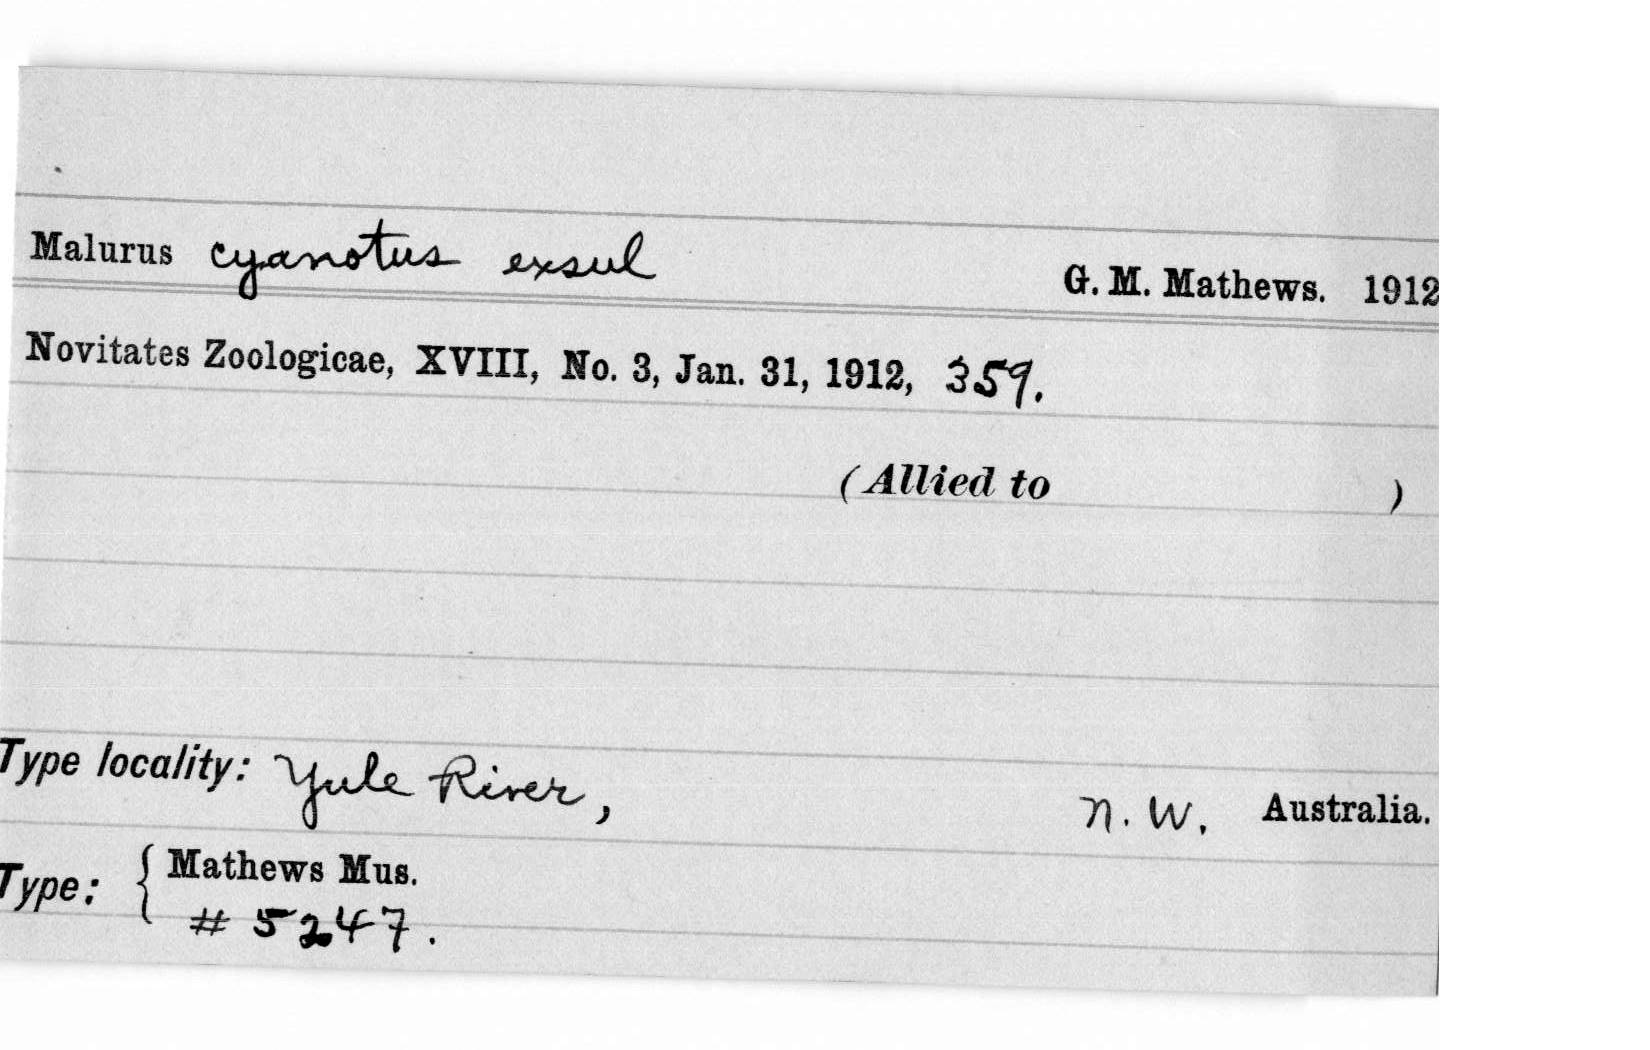 Malurus cyanotus exsul G. M. Mathews. 1912
Novitates Zoologicae, XVIII, No. 3, Jan. 31, 1912, 359.
(Allied to )
Type locality: Yule River, N. W. Australia.
Type: { Mathews Mus.
# 5247.